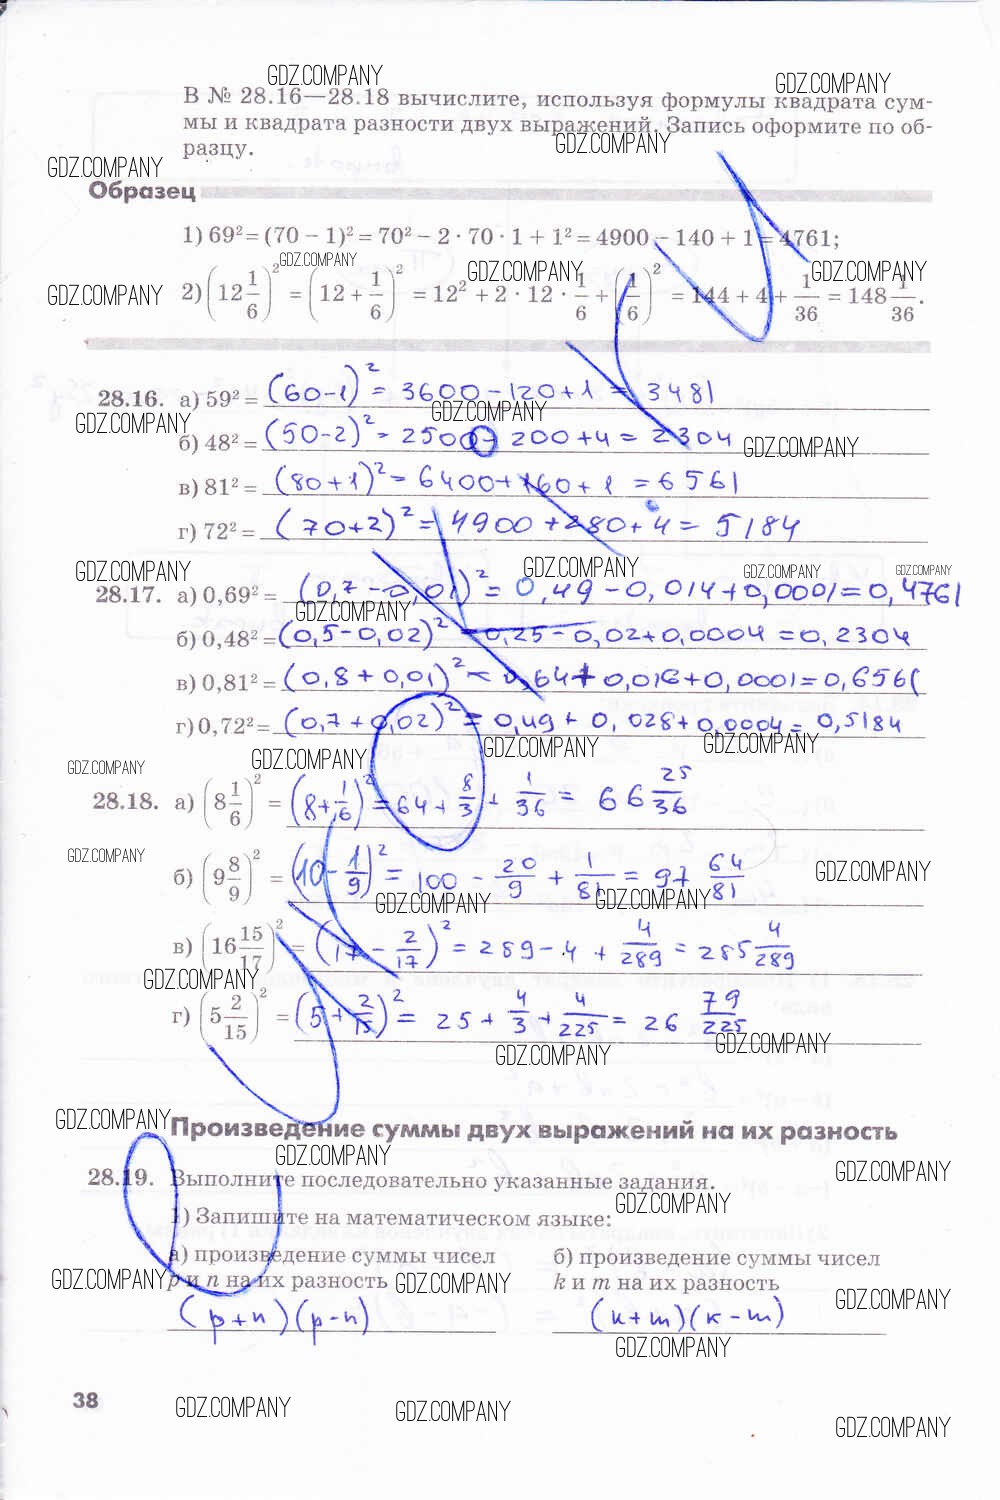 GDZ.COMPANY
GDZ.COMPANY
В № 28.16—28.18 вычислите, используя формулы квадрата сум-
мы и квадрата разности двух выражений. Запись оформите по об-
разцу.
GDZ.COMPANY
GDZ.COMPANY
Образец
1) 69² = (70 − 1)² = 70² − 2 · 70 · 1 + 1² = 4900 − 140 + 1 = 4761;
GDZ.COMPANY GDZ.COMPANY GDZ.COMPANY
GDZ.COMPANY
2) (12 1/6)² = (12 + 1/6)² = 12² + 2 · 12 · 1/6 + (1/6)² = 144 + 4 + 1/36 = 148 1/36.
28.16. а) 59² = (60-1)² = 3600 - 120 + 1 = 3481
GDZ.COMPANY GDZ.COMPANY
б) 48² = (50-2)² = 2500 - 200 + 4 = 2304
GDZ.COMPANY
в) 81² = (80+1)² = 6400 + 160 + 1 = 6561
г) 72² = (70+2)² = 4900 + 280 + 4 = 5184
GDZ.COMPANY GDZ.COMPANY GDZ.COMPANY GDZ.COMPANY
28.17. а) 0,69² = (0,7 - 0,01)² = 0,49 - 0,014 + 0,0001 = 0,4761
GDZ.COMPANY
б) 0,48² = (0,5 - 0,02)² = 0,25 - 0,02 + 0,0004 = 0,2304
в) 0,81² = (0,8 + 0,01)² = 0,64 + 0,016 + 0,0001 = 0,6561
г) 0,72² = (0,7 + 0,02)² = 0,49 + 0,028 + 0,0004 = 0,5184
GDZ.COMPANY GDZ.COMPANY GDZ.COMPANY GDZ.COMPANY
28.18. а) (8 1/6)² = (8 + 1/6)² = 64 + 8/3 + 1/36 = 66 25/36
GDZ.COMPANY
б) (9 8/9)² = (10 - 1/9)² = 100 - 20/9 + 1/81 = 97 64/81
GDZ.COMPANY
GDZ.COMPANY GDZ.COMPANY
в) (16 15/17)² = (17 - 2/17)² = 289 - 4 + 4/289 = 285 4/289
GDZ.COMPANY
г) (5 2/15)² = (5 + 2/15)² = 25 + 4/3 + 4/225 = 26 79/225
GDZ.COMPANY GDZ.COMPANY
GDZ.COMPANY
Произведение суммы двух выражений на их разность
GDZ.COMPANY
GDZ.COMPANY
28.19. Выполните последовательно указанные задания.
GDZ.COMPANY
1) Запишите на математическом языке:
а) произведение суммы чисел
p и n на их разность
(p+n)(p-n)
б) произведение суммы чисел
k и m на их разность
(k+m)(k-m)
GDZ.COMPANY GDZ.COMPANY GDZ.COMPANY
GDZ.COMPANY
38
GDZ.COMPANY GDZ.COMPANY GDZ.COMPANY